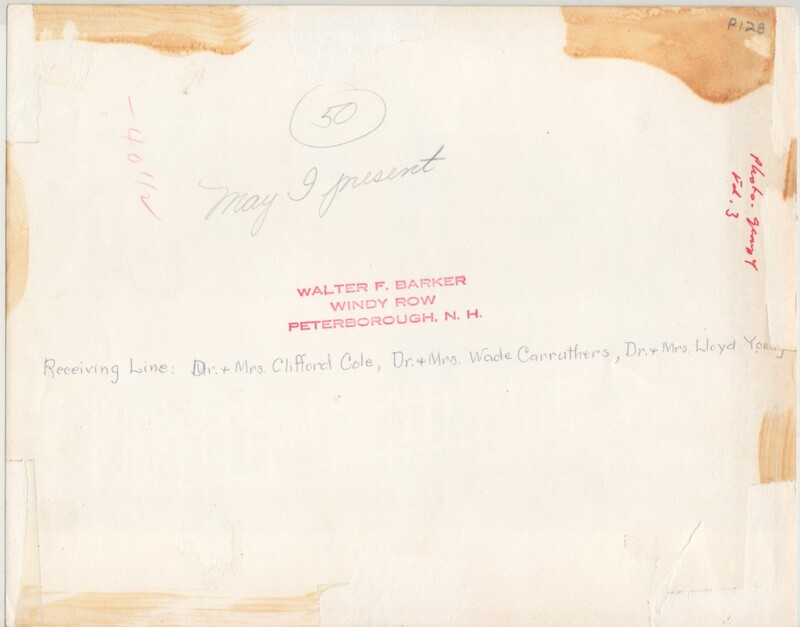 P128
50
May I present
WALTER F. BARKER
WINDY ROW
PETERBOROUGH, N. H.
Receiving Line: Dr. + Mrs. Clifford Cole, Dr. + Mrs. Wade Carruthers, Dr. + Mrs. Lloyd Young
Photo.